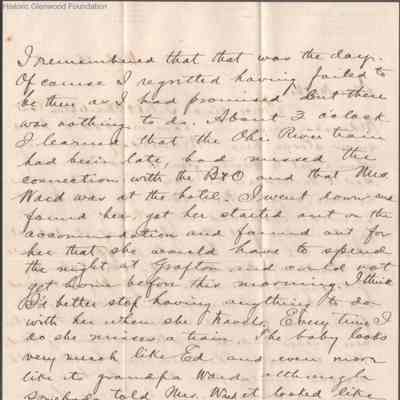 Historic Glenwood Foundation
I remembered that that was the day.
Of cause I regritted having failed to
be then as I had promised but there
was nothing to do. About 3 oclock
I learned that the Oho River train
had been late, had missed the
connection with the B&O and that Mrs
Ward was at the hotel. I went down and
found her, got her started out on the
accommodation and found out for
her that she would have to spend
the night at Grafton and could not
get home before this morning. I think
I'd better stop having anything to do
with her when she travels. Every time I
do she misses a train. The baby looks
very much like Ed and even more
like its grandpa Ward although
somebody told Mrs. W it looked like